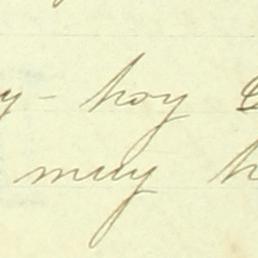 y - hoy
muy h